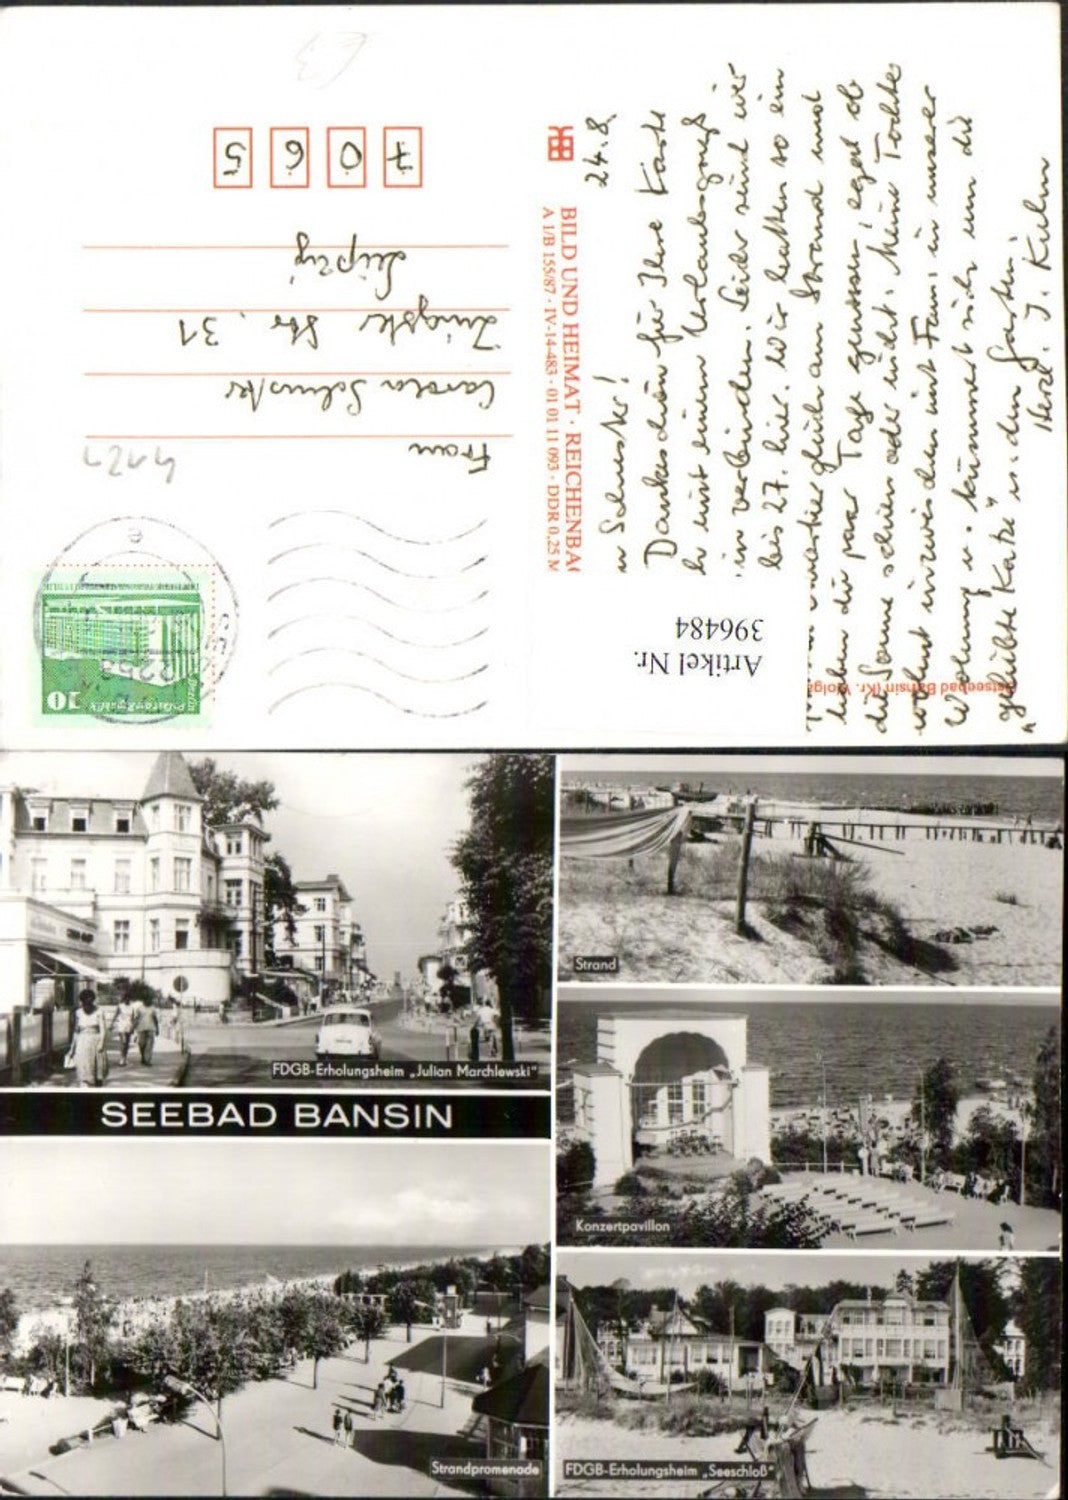 24.8.
Schuster!
Dankeschön für Ihre Karte
mit einem Urlaubsgruß
verbinden. Leider sind wir
bis 27. hier. Wir hatten so ein
am Strand und
haben die paar Tage genossen, egal ob
die Sonne schien oder nicht. Meine Tochter
wohnt inzwischen mit Fam. in unserer
Wohnung u. kümmert sich um die
"geliebte Katze" u. den Garten.
Herzl. J. Kuhn
BILD UND HEIMAT · REICHENBA
A 1/B 155/87 · IV-14-483 · 01 01 11 093 · DDR 0,25 M
Ostseebad Bansin (Kr. Wolga
Artikel Nr.
396484
10
Berlin
2253
4121
Frau
Carola Schuster
Str. 31
Leipzig
7065
FDGB-Erholungsheim „Julian Marchlewski“
SEEBAD BANSIN
Strandpromenade
Strand
Konzertpavillon
FDGB-Erholungsheim „Seeschloß“